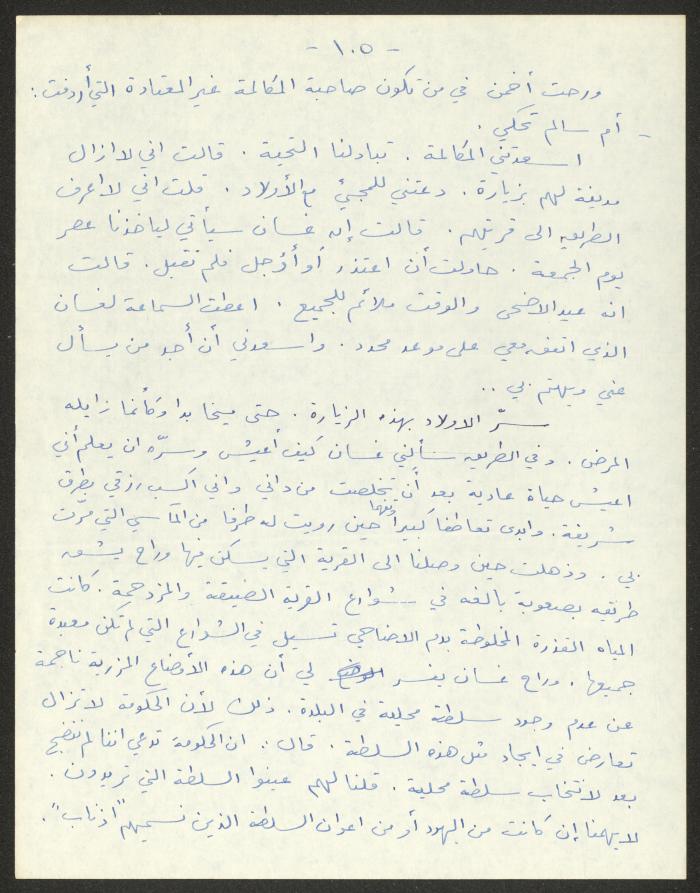 - ١٠٥ -
ورحت أخمن في من تكون صاحبة المكالمة غير المعتادة التي أردفت :
- أم سالم تحكي .
اسعدتني المكالمة . تبادلنا التحية . قالت اني لا ازال
مدينة لهم بزيارة . دعتني للمجيئ مع الأولاد . قلت اني لا اعرف
الطريق الى قريتهم . قالت إن غسان سيأتي لياخذنا عصر
يوم الجمعة . حاولت أن اعتذر أو أؤجل فلم تقبل . قالت
انه عيد الاضحى والوقت ملائم للجميع . اعطت السماعة لغسان
الذي اتفق معي على موعد محدد . واسعدني أن أجد من يسأل
عني ويهتم بي ..
سرّ الاولاد بهذه الزيارة . حتى ميخا بدا وكأنما زايله
المرض . وفي الطريق سألني غسان كيف أعيش وسرّه ان يعلم أني
اعيش حياة عادية بعد أن تخلصت من داني واني اكسب رزقي بطرق
شريفة . وابدى تعاطفا كبيرا وتفهما حين رويت له طرفا من المآسي التي مرّت
بي . وذهلت حين وصلنا الى القرية التي يسكن فيها وراح يشق
طريقه بصعوبة بالغة في شوارع القرية الضيقة والمزدحمة . كانت
المياه القذرة المخلوطة بدم الاضاحي تسيل في الشوارع التي لم تكن معبدة
جميعها . وراح غسان يفسر لي أن هذه الأوضاع المزرية ناجمة
عن عدم وجود سلطة محلية في البلدة . ذلك لأن الحكومة لا تزال
تعارض في ايجاد مثل هذه السلطة . قال : ان الحكومة تدعي اننا لم ننضج
بعد لانتخاب سلطة محلية . قلنا لهم عينوا السلطة التي تريدون .
لا يهمنا إن كانت من اليهود أو من اعوان السلطة الذين نسميهم "اذناب" .